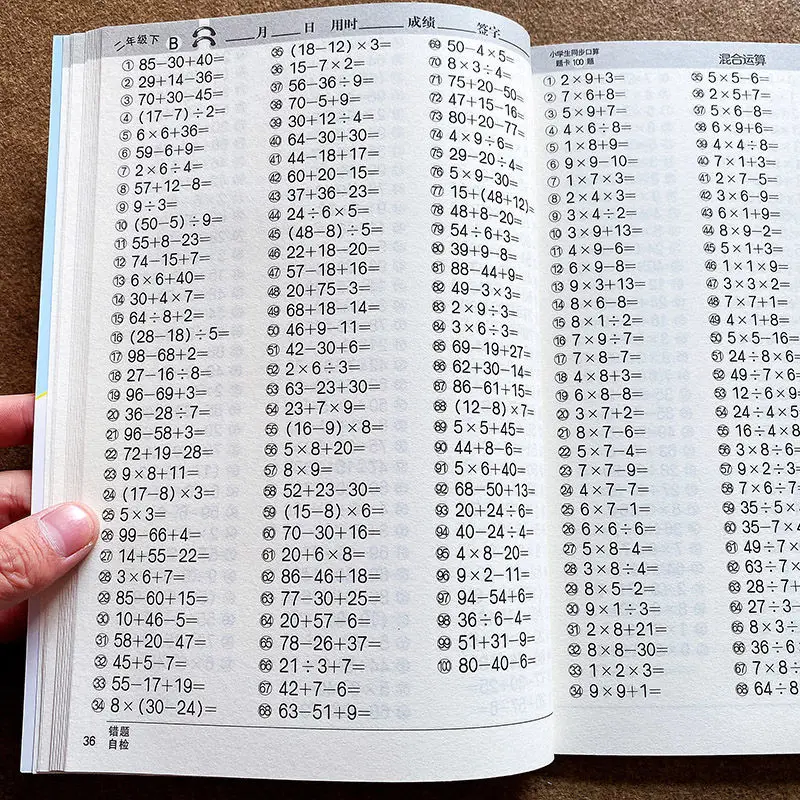 二年级下 B ___月___日 用时___成绩___签字___
① 85−30+40=
② 29+14−36=
③ 70+30−45=
④ (17−7)÷2=
⑤ 6×6+36=
⑥ 59−6+9=
⑦ 2×6÷4=
⑧ 57+12−8=
⑨ 9÷3=
⑩ (50−5)÷9=
⑪ 55+8−23=
⑫ 74−15+7=
⑬ 6×6+40=
⑭ 30+4×7=
⑮ 64÷8+2=
⑯ (28−18)÷5=
⑰ 98−68+2=
⑱ 27−16÷8=
⑲ 96−69+3=
⑳ 36−28÷7=
㉑ 96−58+3=
㉒ 72+19−28=
㉓ 9×8+11=
㉔ (17−8)×3=
㉕ 5×3=
㉖ 99−66+4=
㉗ 14+55−22=
㉘ 3×6+7=
㉙ 85−60+15=
㉚ 10+46−5=
㉛ 58+20−47=
㉜ 45+5−7=
㉝ 55−17+19=
㉞ 8×(30−24)=
㉟ (18−12)×3=
㊱ 15−7×2=
㊲ 56−36÷9=
㊳ 70−5+9=
㊴ 30+12÷4=
㊵ 64−30+30=
㊶ 44−18+17=
㊷ 60+20−15=
㊸ 37+36−23=
㊹ 24÷6×5=
㊺ (48−8)÷5=
㊻ 22+18−20=
㊼ 57−18+16=
㊽ 20+75−3=
㊾ 68+18−14=
㊿ 46+9−11=
51 42−30+6=
52 2×6÷3=
53 63−23+30=
54 23+7×9=
55 (16−9)×8=
56 5×8+20=
57 8×9=
58 52+23−30=
59 (15−8)×6=
60 70−30+16=
61 20+6×8=
62 86−46+18=
63 77−30+25=
64 20+57−6=
65 78−26+37=
66 21÷3+7=
67 42+7−6=
68 63−51+9=
69 50−4×5=
70 8×3÷4=
71 75+20−50=
72 47+15−16=
73 80+20−77=
74 4×9÷6=
75 29−20÷4=
76 5×9−30=
77 15+(48+12)=
78 48+8−20=
79 54÷6+3=
80 39+9−8=
81 88−44+9=
82 49−3×3=
83 2×9÷3=
84 3×6÷3=
85 69−19+27=
86 62+30−14=
87 86−61+15=
88 (12−8)×7=
89 5×5+45=
90 44+8−6=
91 5×6+40=
92 68−50+13=
93 20+24÷6=
94 40−24÷4=
95 4×8−20=
96 9×2−11=
97 94−54+6=
98 36÷6−4=
99 51+31−9=
100 80−40−6=
36 错题
自检
小学生同步口算
题卡 100 题
混合运算
① 2×9+3=
② 7×6+8=
③ 5×9+7=
④ 4×6÷8=
⑤ 1×8+9=
⑥ 9×9−10=
⑦ 1×7×3=
⑧ 2×4×3=
⑨ 3×4÷2=
⑩ 3×9+13=
⑪ 4×9−6=
⑫ 6×9−8=
⑬ 9×3+13=
⑭ 8×6−8=
⑮ 8×1÷2=
⑯ 7×9÷7=
⑰ 7×8−7=
⑱ 4×8+3=
⑲ 6×8−8=
⑳ 3×7+2=
㉑ 8×7−6=
㉒ 5×7−4=
㉓ 7×7−9=
㉔ 4×7−7=
㉕ 6×7−1=
㉖ 6×6÷6=
㉗ 5×8−4=
㉘ 3×8÷4=
㉙ 8×5−2=
㉚ 9×1÷3=
㉛ 2×8+21=
㉜ 8×8−30=
㉝ 1×2×3=
㉞ 9×9+1=
㉟ 5×5−6=
㊱ 2×5+7=
㊲ 5×6−8=
㊳ 6×9+6=
㊴ 4×4÷8=
㊵ 7×1+3=
㊶ 2×7−5=
㊷ 3×6−9=
㊸ 6×1+9=
㊹ 8×9−2=
㊺ 5×1+3=
㊻ 1×1×9=
㊼ 3×3×2=
㊽ 7×7+1=
㊾ 4×1+8=
㊿ 5×5−16=
51 24÷8×6=
52 49÷7×6=
53 12÷6×9
54 24÷4×5
55 16÷4×8
56 3×8÷6=
57 9×2÷3=
58 7×6÷7=
59 35÷5×
60 35−7×
61 49÷7×
62 63÷7×
63 28÷7+
64 27÷3−
65 8×3÷
66 36÷6
67 7×8÷
68 64÷8